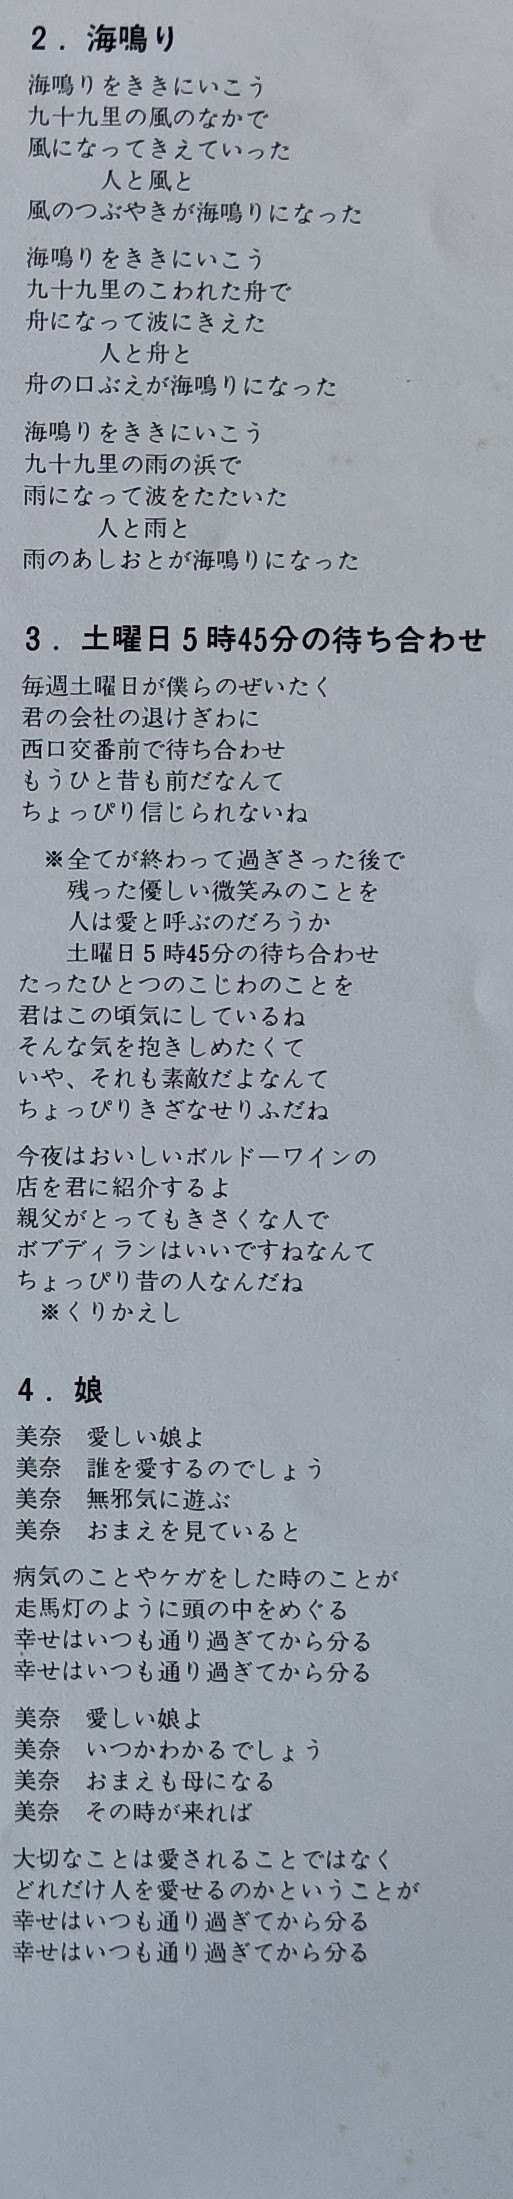 2．海鳴り
海鳴りをききにいこう
九十九里の風のなかで
風になってきえていった
人と風と
風のつぶやきが海鳴りになった
海鳴りをききにいこう
九十九里のこわれた舟で
舟になって波にきえた
人と舟と
舟の口ぶえが海鳴りになった
海鳴りをききにいこう
九十九里の雨の浜で
雨になって波をたたいた
人と雨と
雨のあしおとが海鳴りになった
3．土曜日5時45分の待ち合わせ
毎週土曜日が僕らのぜいたく
君の会社の退けぎわに
西口交番前で待ち合わせ
もうひと昔も前だなんて
ちょっぴり信じられないね
※全てが終わって過ぎさった後で
残った優しい微笑みのことを
人は愛と呼ぶのだろうか
土曜日5時45分の待ち合わせ
たったひとつのこじわのことを
君はこの頃気にしているね
そんな気を抱きしめたくて
いや、それも素敵だよなんて
ちょっぴりきざなせりふだね
今夜はおいしいボルドーワインの
店を君に紹介するよ
親父がとってもきさくな人で
ボブディランはいいですねなんて
ちょっぴり昔の人なんだね
※くりかえし
4．娘
美奈　愛しい娘よ
美奈　誰を愛するのでしょう
美奈　無邪気に遊ぶ
美奈　おまえを見ていると
病気のことやケガをした時のことが
走馬灯のように頭の中をめぐる
幸せはいつも通り過ぎてから分る
幸せはいつも通り過ぎてから分る
美奈　愛しい娘よ
美奈　いつかわかるでしょう
美奈　おまえも母になる
美奈　その時が来れば
大切なことは愛されることではなく
どれだけ人を愛せるのかということが
幸せはいつも通り過ぎてから分る
幸せはいつも通り過ぎてから分る